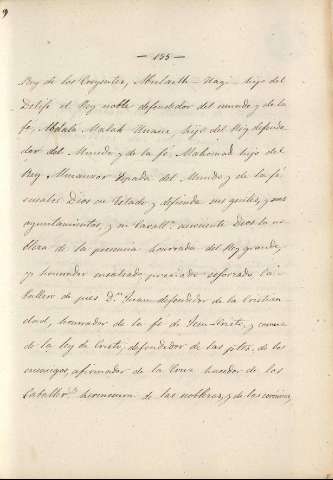 — 155 —
Rey de los Creyentes, Hagi - hijo del
Delife el Rey noble defendedor del mundo y de la
fe, Abdala, Malah hijo del Rey defende
dor del Mundo y de la fé, Mahomad hijo del
Rey Almanzor Espada del Mundo y de la fé
ensalce Dios su Estado y defienda sus gentes, y sus
ayuntamientos, y su Cavall.ª acreciente Dios la no
bleza de la presencia honrrada del Rey grande,
y honrrador ensalzado preciado esforzado, Ca-
ballero de pres D.n Juan defendedor de la Cristian
dad, honrrador de la fé de Jesu-Cristo, y corona
de la ley de Cristo, defendedor de las de los
enemigos, afirmador de la Cruz hacedor de los
Caballer.s hermosura de las noblezas, y de las coronas,